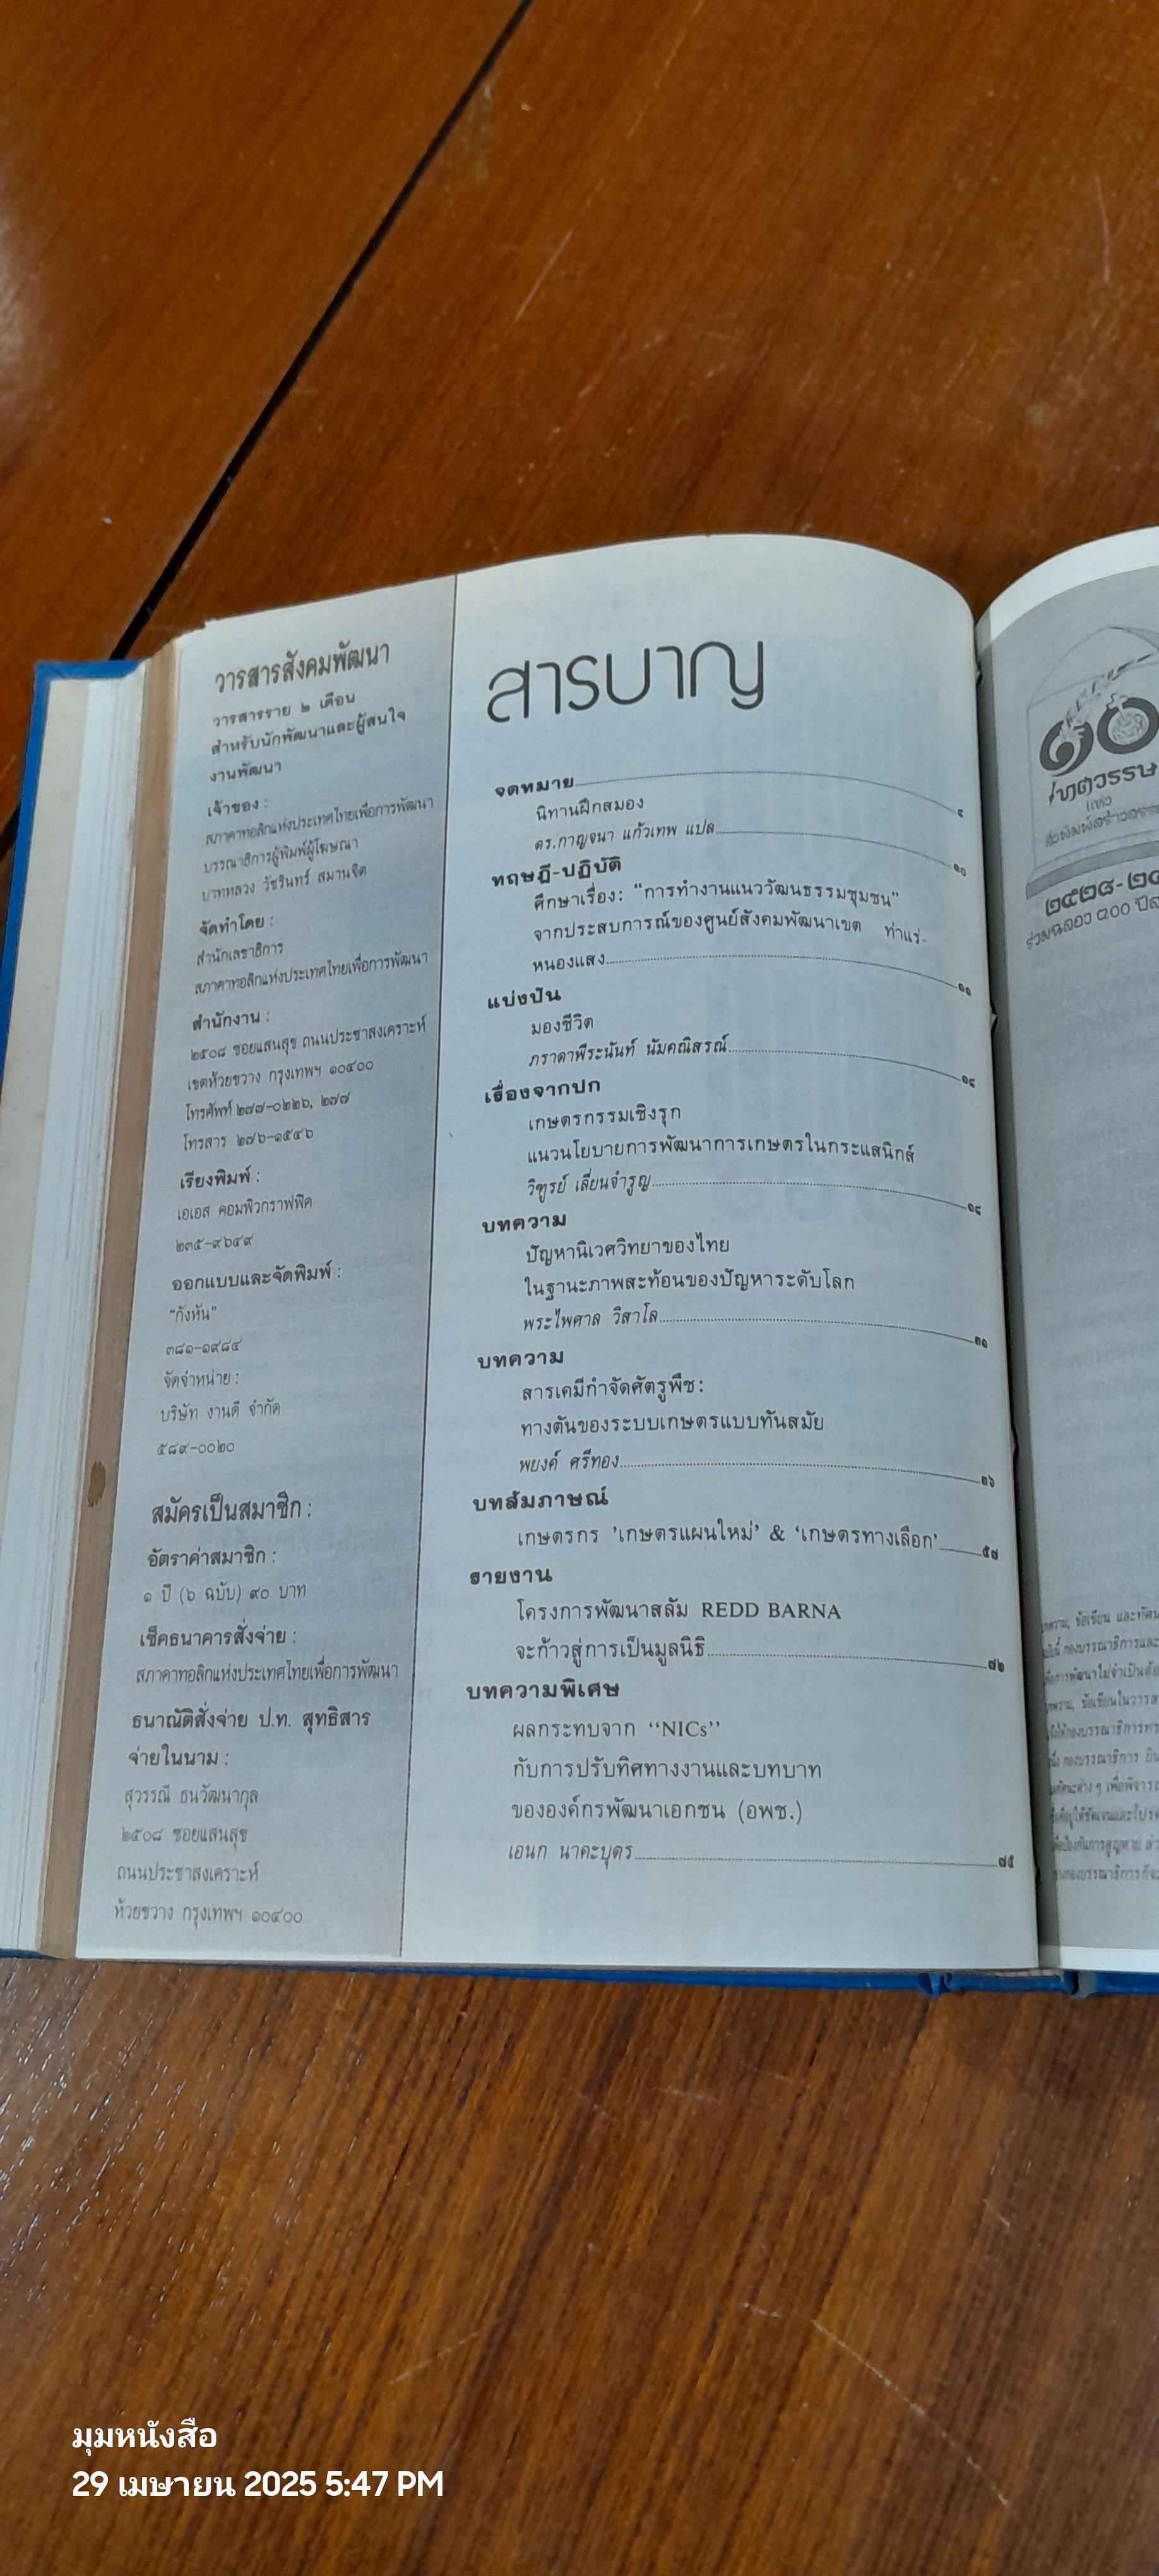 วารสารสังคมพัฒนา
วารสารราย ๒ เดือน
สำหรับนักพัฒนาและผู้สนใจ
งานพัฒนา
เจ้าของ :
สภาคาทอลิกแห่งประเทศไทยเพื่อการพัฒนา
บรรณาธิการผู้พิมพ์ผู้โฆษณา
บาทหลวง วัชรินทร์ สมานจิต
จัดทำโดย :
สำนักเลขาธิการ
สภาคาทอลิกแห่งประเทศไทยเพื่อการพัฒนา
สำนักงาน :
๒๕๐๘ ซอยแสนสุข ถนนประชาสงเคราะห์
เขตห้วยขวาง กรุงเทพฯ ๑๐๔๐๐
โทรศัพท์ ๒๗๗-๐๒๒๖, ๒๗๗
โทรสาร ๒๗๖-๑๕๔๖
เรียงพิมพ์ :
เอเอส คอมพิวกราฟฟิค
๒๓๕-๙๖๔๙
ออกแบบและจัดพิมพ์ :
“กังหัน”
๓๘๑-๑๙๘๔
จัดจำหน่าย :
บริษัท งานดี จำกัด
๕๘๙-๐๐๒๐
สมัครเป็นสมาชิก :
อัตราค่าสมาชิก :
๑ ปี (๖ ฉบับ) ๙๐ บาท
เช็คธนาคารสั่งจ่าย :
สภาคาทอลิกแห่งประเทศไทยเพื่อการพัฒนา
ธนาณัติสั่งจ่าย ป.ท. สุทธิสาร
จ่ายในนาม :
สุวรรณี ธนวัฒนากุล
๒๕๐๘ ซอยแสนสุข
ถนนประชาสงเคราะห์
ห้วยขวาง กรุงเทพฯ ๑๐๔๐๐
สารบาญ
จดหมาย
นิทานฝึกสมอง
ดร.กาญจนา แก้วเทพ แปล ๑๐
ทฤษฎี-ปฏิบัติ
ศึกษาเรื่อง: “การทำงานแนววัฒนธรรมชุมชน”
จากประสบการณ์ของศูนย์สังคมพัฒนาเขต ท่าแร่-
หนองแสง ๑๑
แบ่งปัน
มองชีวิต
ภราดาพีระนันท์ นัมคณิสรณ์
เรื่องจากปก
เกษตรกรรมเชิงรุก
แนวนโยบายการพัฒนาการเกษตรในกระแสนิกส์
วิฑูรย์ เลี่ยนจำรูญ ๑๘
บทความ
ปัญหานิเวศวิทยาของไทย
ในฐานะภาพสะท้อนของปัญหาระดับโลก
พระไพศาล วิสาโล ๓๐
บทความ
สารเคมีกำจัดศัตรูพืช:
ทางตันของระบบเกษตรแบบทันสมัย
พยงค์ ศรีทอง ๓๖
บทสัมภาษณ์
เกษตรกร ’เกษตรแผนใหม่’ & ‘เกษตรทางเลือก’ ๕๗
รายงาน
โครงการพัฒนาสลัม REDD BARNA
จะก้าวสู่การเป็นมูลนิธิ ๗๒
บทความพิเศษ
ผลกระทบจาก “NICs”
กับการปรับทิศทางงานและบทบาท
ขององค์กรพัฒนาเอกชน (อพช.)
เอนก นาคะบุตร ๗๕
๑๐
ทศวรรษ
แห่ง
มุมหนังสือ
29 เมษายน 2025 5:47 PM